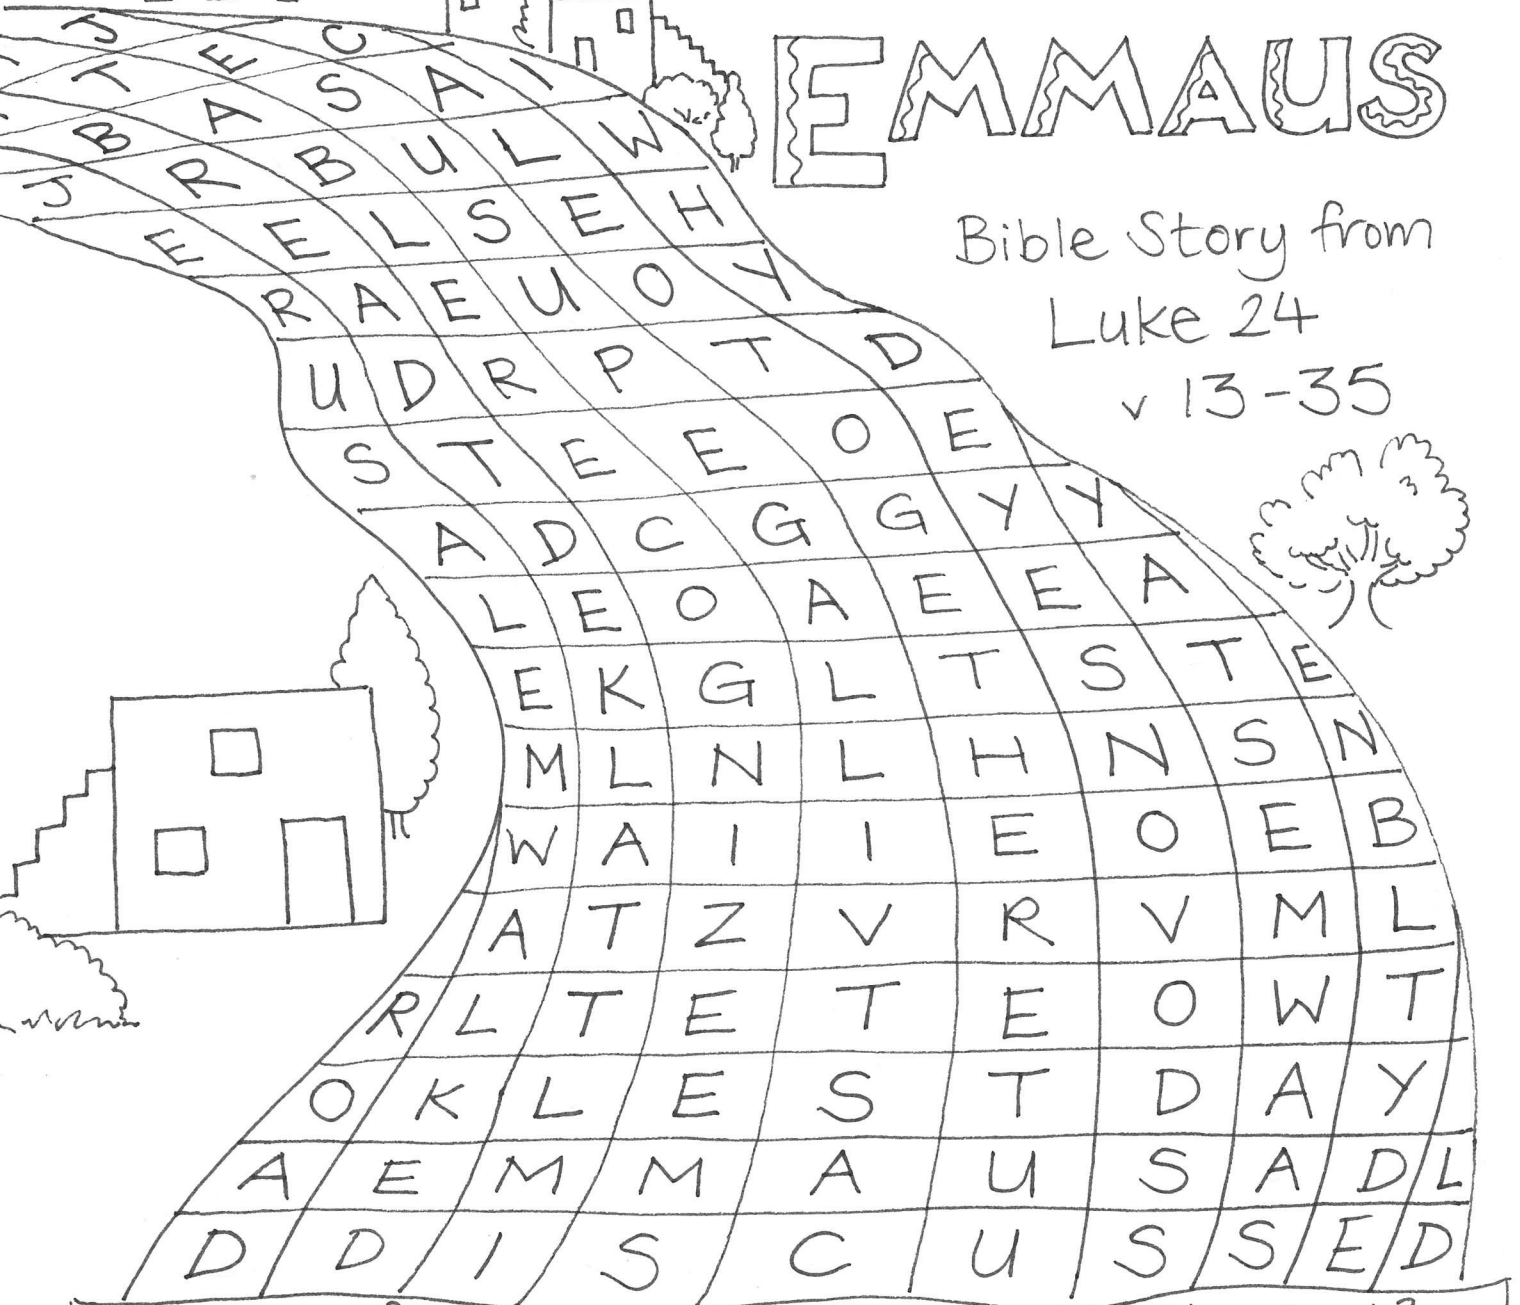 EMMAUS
Bible Story from
Luke 24
v 13-35
J E C
T A S A I
B R B U L W
J E E L S E H
R A E U O Y
U D R P T D
S T E E O E
A D C G G Y Y
L E O A E E A
E K G L T S T E
M L N L H N S N
W A I I E O E B
A T Z V R V M L
R L T E T E O W T
O K L E S T D A Y
A E M M A U S A D L
D D I S C U S S E D